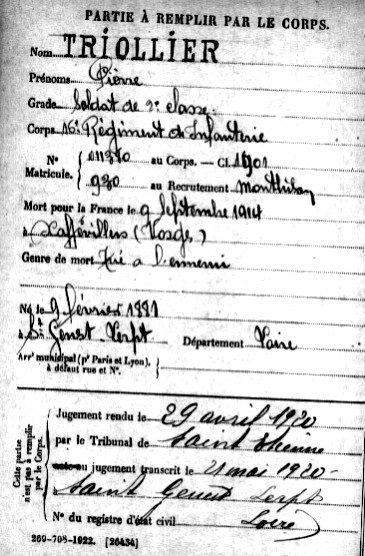 PARTIE À REMPLIR PAR LE CORPS.
Nom TRIOLLIER
Prénoms Pierre
Grade Soldat de 2e classe
Corps 16e Régiment d'Infanterie
N° 011370 au Corps. — Cl. 1901
Matricule. 980 au Recrutement Montbrison
Mort pour la France le 9 Septembre 1914
à Xaffévillers (Vosges)
Genre de mort Tué à l'ennemi
Né le 9 février 1881
à St Genest Lerpt Département Loire
Arrt municipal (pr Paris et Lyon),
à défaut rue et N°.
Cette partie
n'est pas à remplir
par le Corps.
Jugement rendu le 29 avril 1920
par le Tribunal de Saint Etienne
jugement transcrit le 21 mai 1920
Saint Genest Lerpt
N° du registre d'état civil Loire
269-708-1922. [26434]